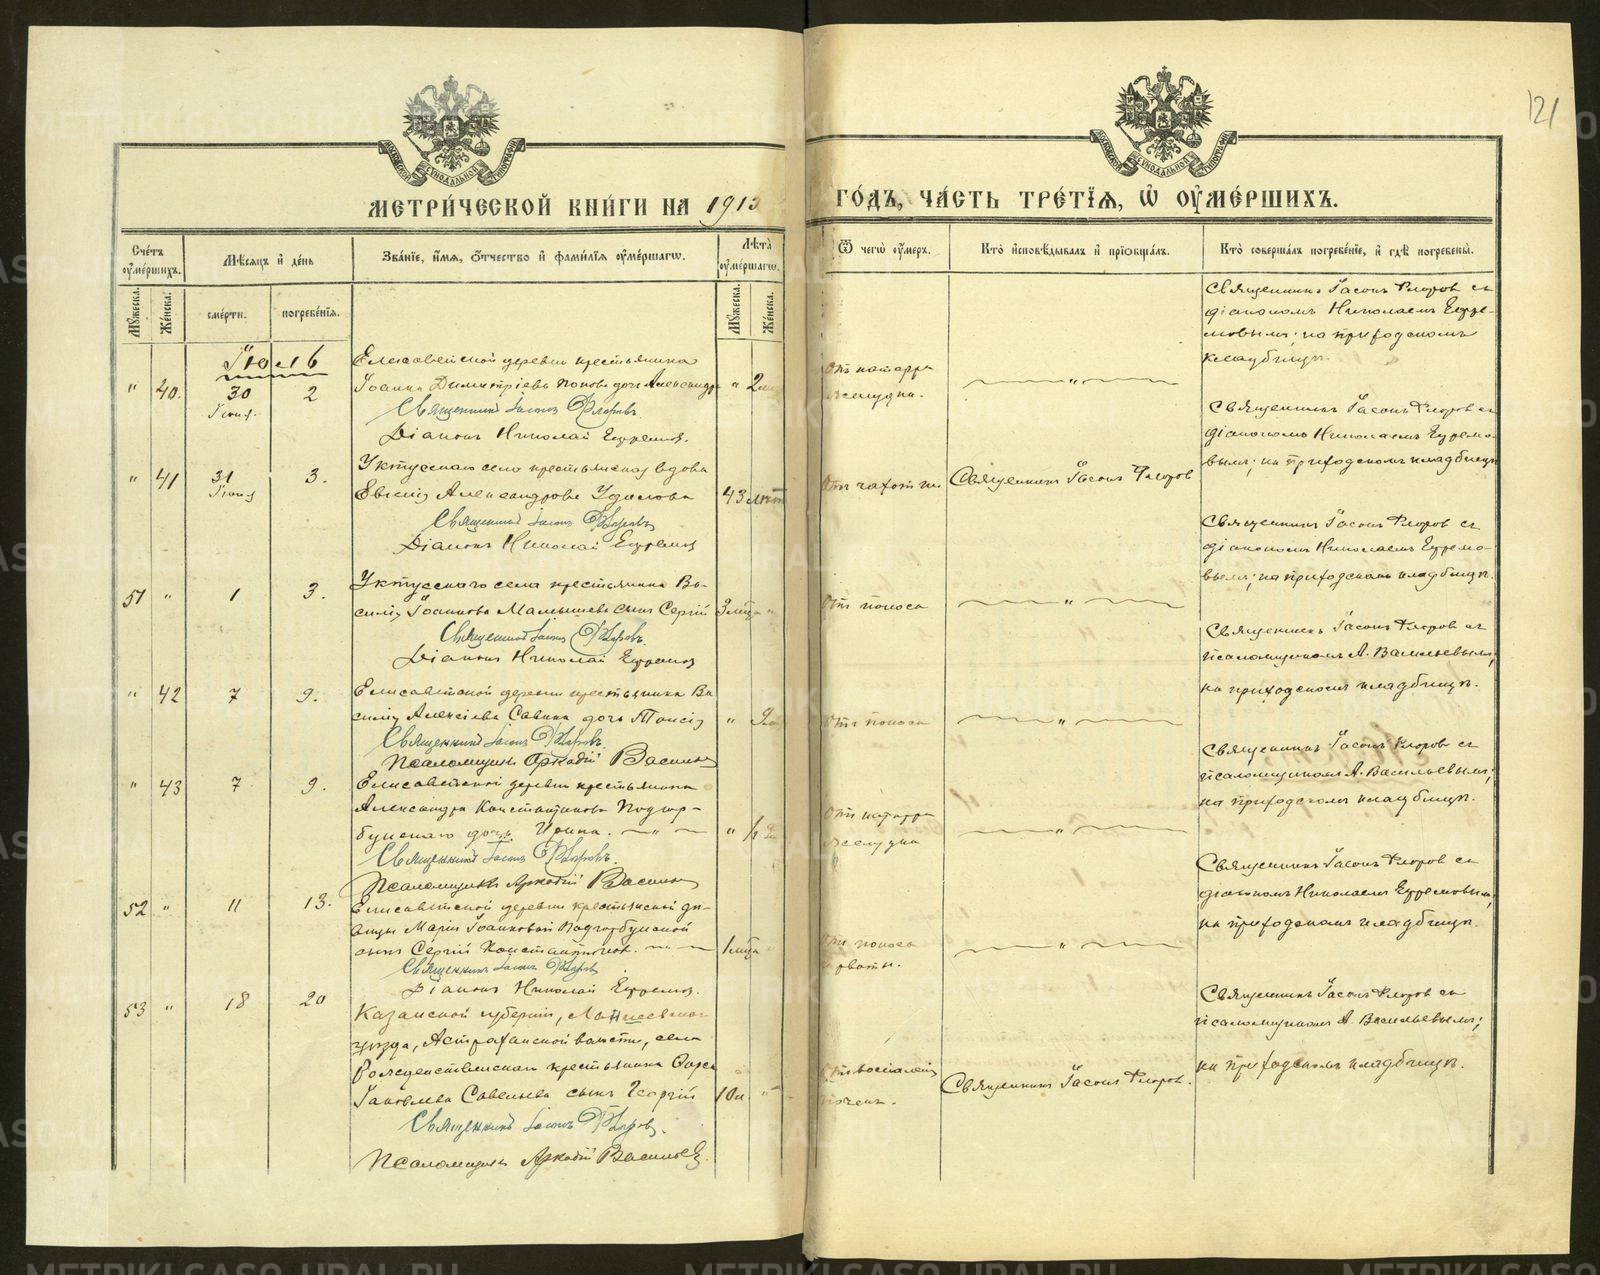 121
МЕТРИ́ЧЕСКОЙ КНИ́ГИ НА 1913
ГО́ДЪ, ЧА́СТЬ ТРЕ́ТЇѦ, Ѡ҆ ОУ҆МЕ́РШИХЪ.
Сче́тъ оу҆ме́ршихъ.
Мѣ́сѧцъ и҆ де́нь
Зва́нїе, и҆́мѧ, ѻ҆́тчество и҆ фами́лїѧ оу҆ме́ршагѡ.
Лѣ́та оу҆ме́ршагѡ.
Ѿ чегѡ̀ оу҆́меръ.
Кто̀ и҆сповѣ́дывалъ и҆ прїѻбща́лъ.
Кто̀ соверша́лъ погребе́нїе, и҆ гдѣ̀ погребены̀.
Мꙋ́жеска.
Же́нска.
сме́рти.
погребе́нїѧ.
Мꙋ́жеска.
Же́нска.
Іюль
" 40. 30 2
Іюня.
Елисаветской деревни крестьянина
Іоанна Димитріева Попова дочь Александра " 2
Священникъ Іасонъ Флоровъ
Діаконъ Николай Ефремов.
Отъ катарра
желудка.
Священникъ Іасонъ Флоровъ съ
діакономъ Николаемъ Ефре-
мовымъ; на приходскомъ
кладбищѣ.
" 41 31 3.
Іюня
Уктусскаго села крестьянская вдова
Александрова 43
Священникъ Іасонъ Флоровъ
Діаконъ Николай Ефремов
Отъ чахотки
Священникъ Іасонъ Флоров
Священникъ Іасонъ Флоров съ
діакономъ Николаемъ Ефремо-
вымъ; на приходскомъ кладбищѣ
51 " 1 3.
Уктусскаго села крестьянина Ва-
силія Іоаннова Малышева сынъ Сергій 3 мца "
Священникъ Іасонъ Флоровъ
Діаконъ Николай Ефремов
Отъ поноса
Священникъ Іасонъ Флоров съ
діакономъ Николаемъ Ефремо-
вымъ; на приходскомъ кладбищѣ.
" 42 7 9.
Елисаветской деревни крестьянина Ва
силія Алексіева Савина дочь Таисія "
Священникъ Іасонъ Флоровъ
Псаломщикъ Аркадій Васильев
Отъ поноса
Священникъ Іасонъ Флоров съ
псаломщикомъ А. Васильевымъ;
на приходскомъ кладбищѣ.
" 43 7 9.
Елисаветской деревни крестьянина
Александра Константинова Подкор-
бунскаго дочь Ирина. "
Священникъ Іасонъ Флоровъ.
Псаломщикъ Аркадій Васильев
Отъ катарра
желудка
Священникъ Іасонъ Флоров съ
псаломщикомъ А. Васильевымъ;
на приходскомъ кладбищѣ.
52 " 11 13.
Елисаветской деревни крестьянской дѣ-
вицы Маріи Іоанновой Подкорбунской
сынъ Сергій Константинов. 1 мца "
Священникъ Іасонъ Флоров
Діаконъ Николай Ефремов.
Отъ поноса
рвоты.
Священникъ Іасонъ Флоров съ
діакономъ Николаемъ Ефремовымъ;
на приходскомъ кладбищѣ.
53 " 18 20
Казанской губерніи, Лаишевскаго
уѣзда, Астраханской волости, села
Рождественскаго крестьянина
Іаковлева Савельева сынъ Георгій 10 "
Священникъ Іасонъ Флоров.
Псаломщикъ Аркадій Васильев
Отъ воспаленія
почекъ.
Священникъ Іасонъ Флоров.
Священникъ Іасонъ Флоров съ
псаломщикомъ А. Васильевымъ;
на приходскомъ кладбищѣ.